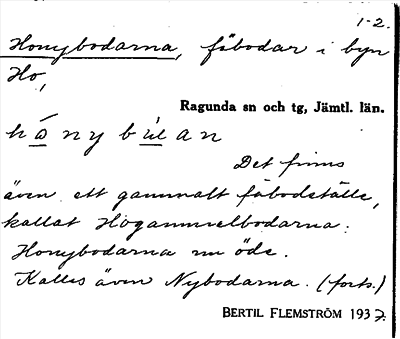 1-2.
Honybodarna, fäbodar i byn
Ho,
Ragunda sn och tg, Jämtl. län.
hónybúan
Det finns
även ett gammalt fäbodställe,
kallat Högammelbodarna.
Honybodarna nu öde.
Kallas även Nybodarna. (forts.)
BERTIL FLEMSTRÖM 1937.